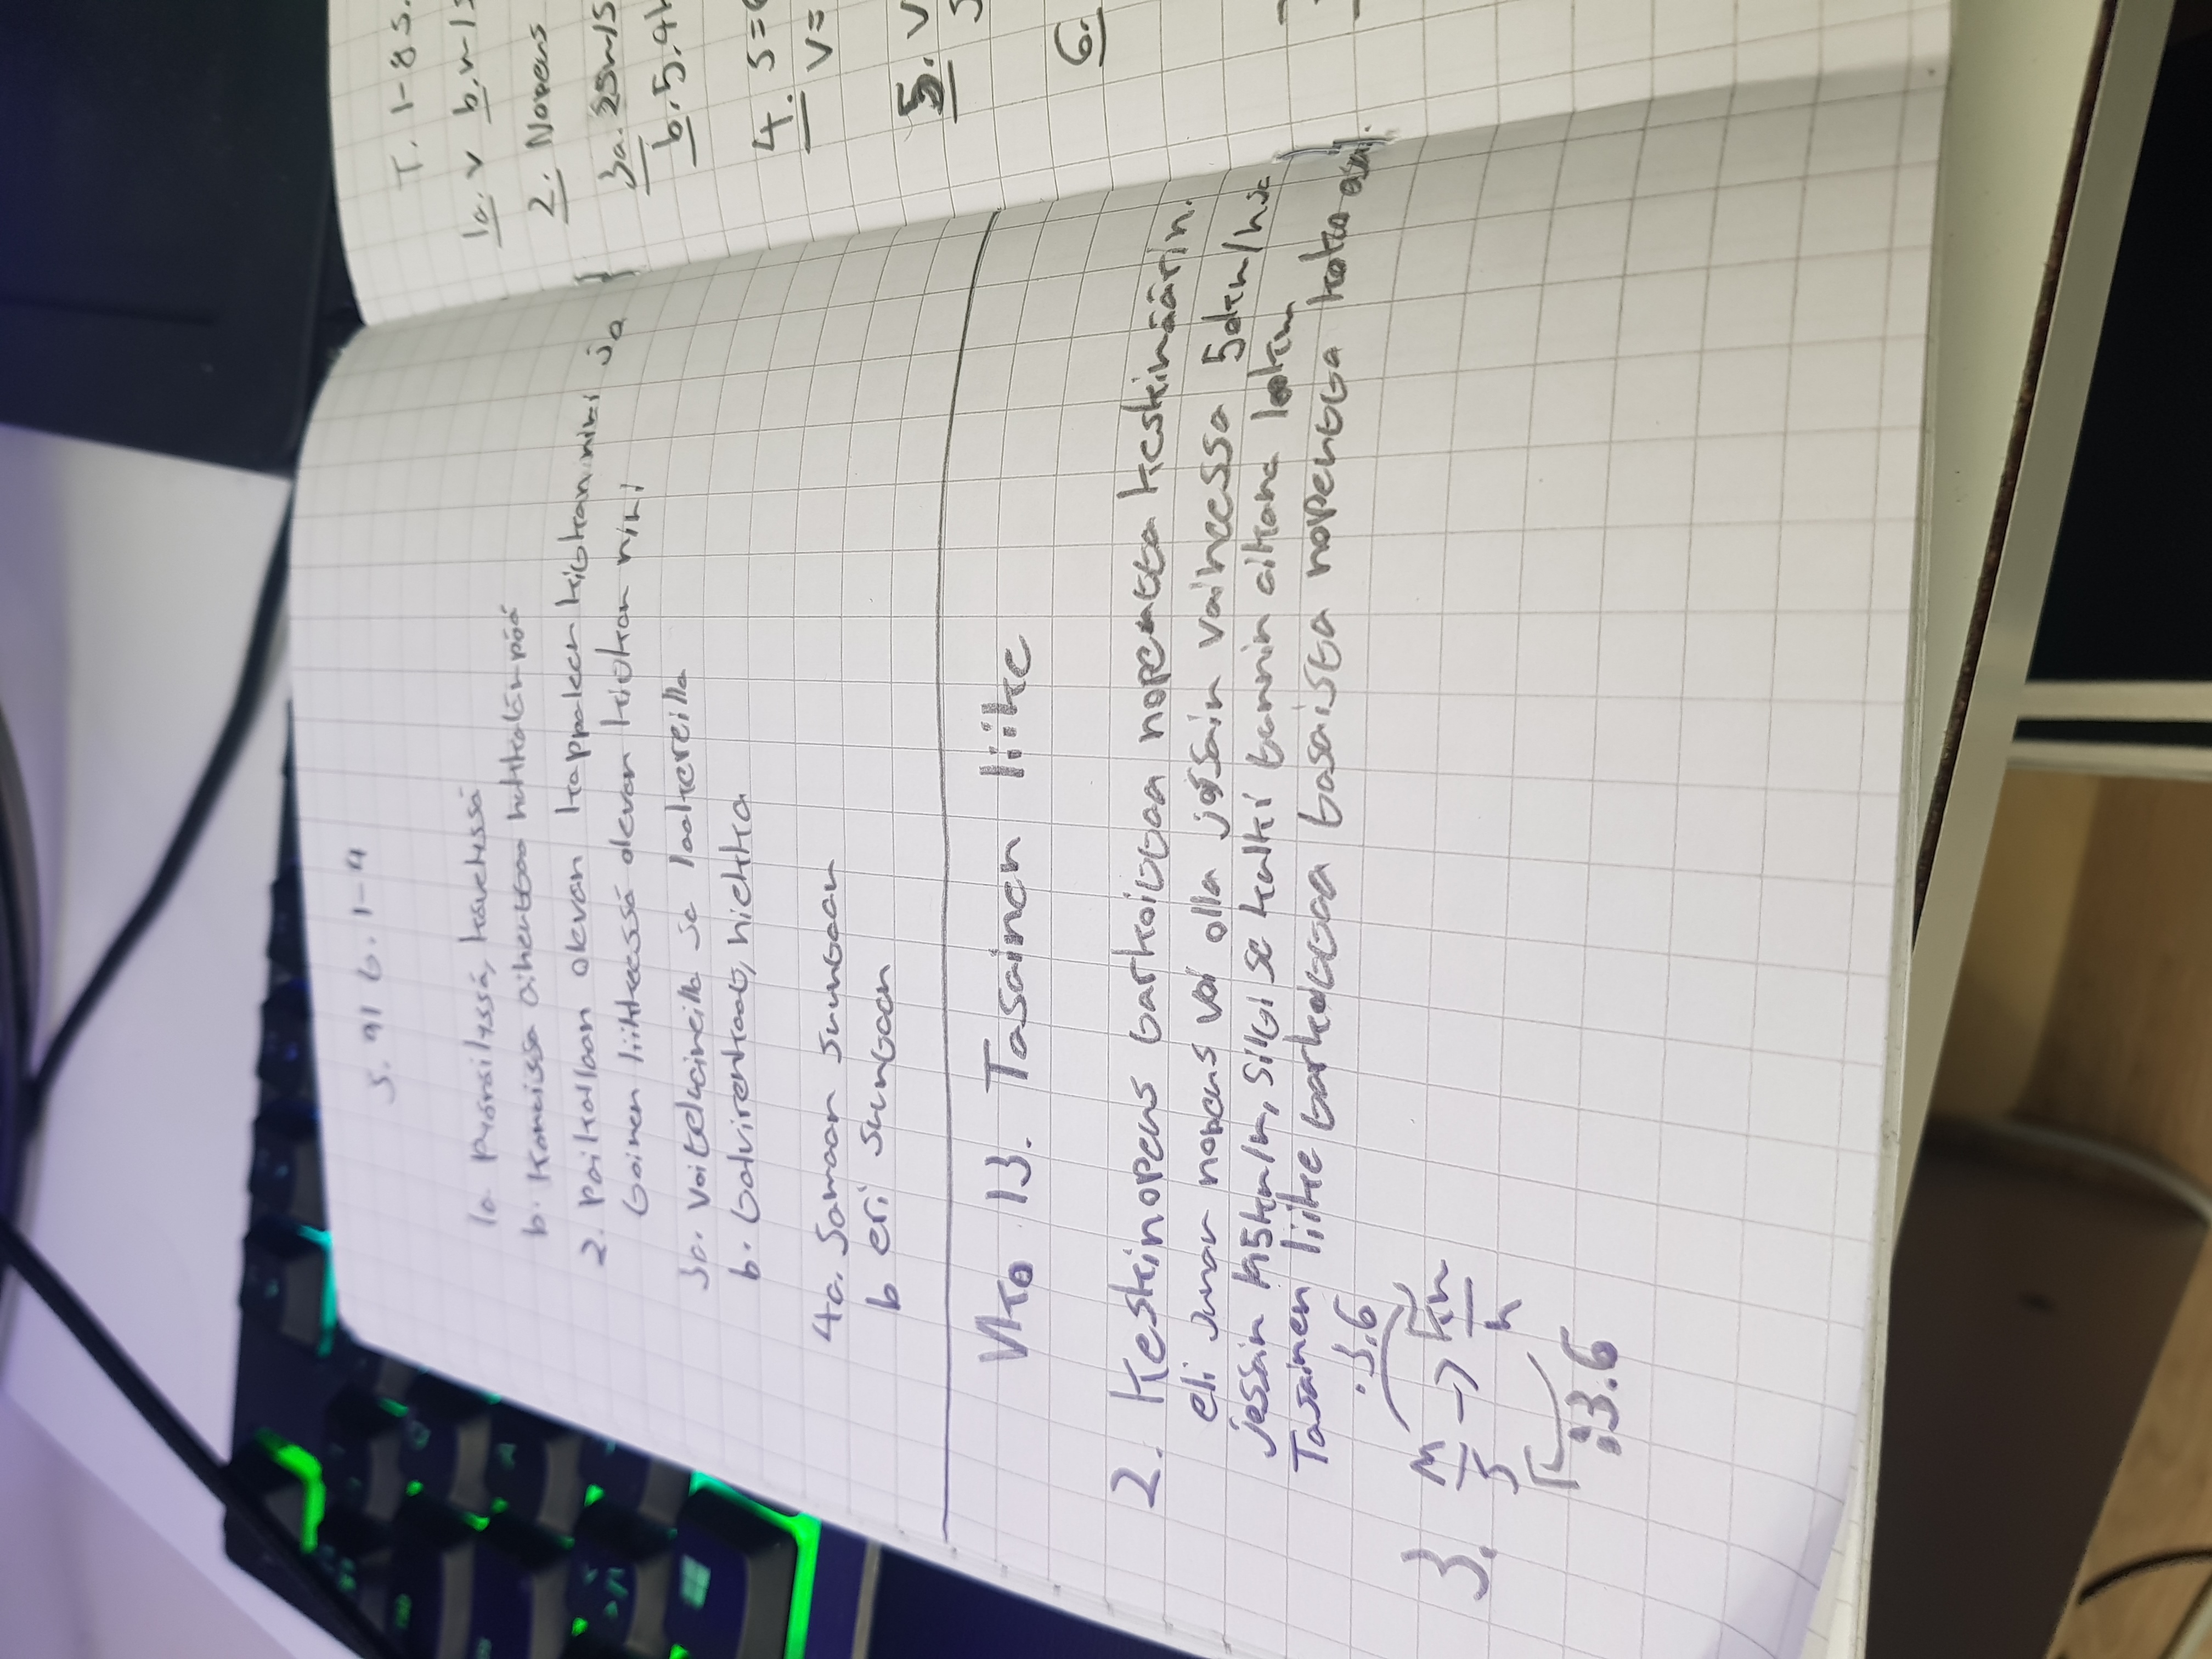 S. 91 t. 1-4
1a pyöräilyssä, kävelyssä
b. Koneissa aiheuttaa hukkalämpöä
2. paikallaan olevan kappaleen kitkanimi ja
toinen liikkeessä olevan kitkan nimi
3a. voitelucineilla ja laakereilla
b. talvirenkaat, hiekka
4a. Samaan suuntaan
b eri suuntaan
Vko 13. Tasainen liike
2. Keskinopeus tarkoittaa nopeutta keskimäärin.
eli junan nopeus voi olla jossain vaiheessa 50km/h ja
jossain 145km/h, silti se kulki tunnin aikana
Tasainen liike tarkoittaa tasaista nopeutta koko ajan.
·3.6
3. m/s → km/h
:3.6
T. 1-8 s.
1a. v b. m/s
2. Nopeus
3a. 25m/s
b. 5.4k
4. s=
v=
5. v
6.